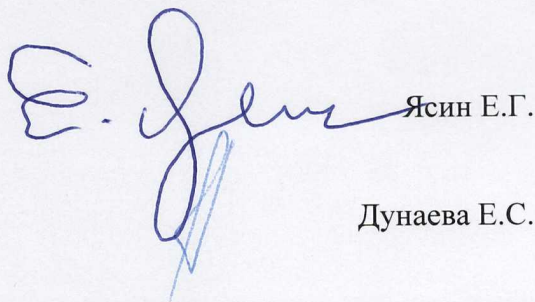 Ясин Е.Г.
Дунаева Е.С.